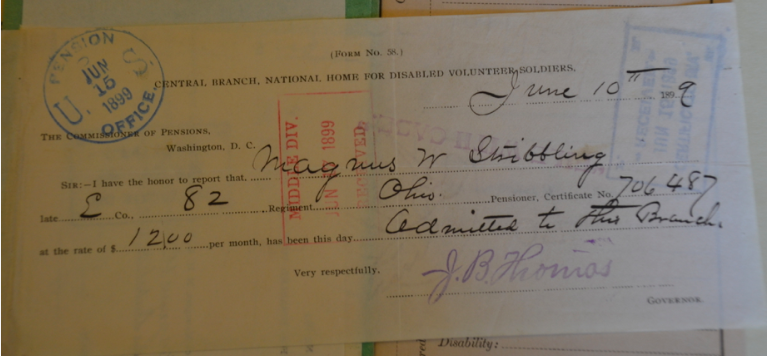 (FORM NO. 58.)
CENTRAL BRANCH, NATIONAL HOME FOR DISABLED VOLUNTEER SOLDIERS,
June 10th 1899
U. S. PENSION OFFICE.
JUN 15 1899
THE COMMISSIONER OF PENSIONS,
Washington, D. C.
MIDDLE DIV.
JUN 1899
RECEIVED
RECEIVED
SIR:—I have the honor to report that Magnus W Stribbling
late E Co., 82 Regiment Ohio. Pensioner, Certificate No. 706487
at the rate of $ 12.00 per month, has been this day Admitted to this Branch.
Very respectfully,
J. B. Thomas
GOVERNOR.
Disability: